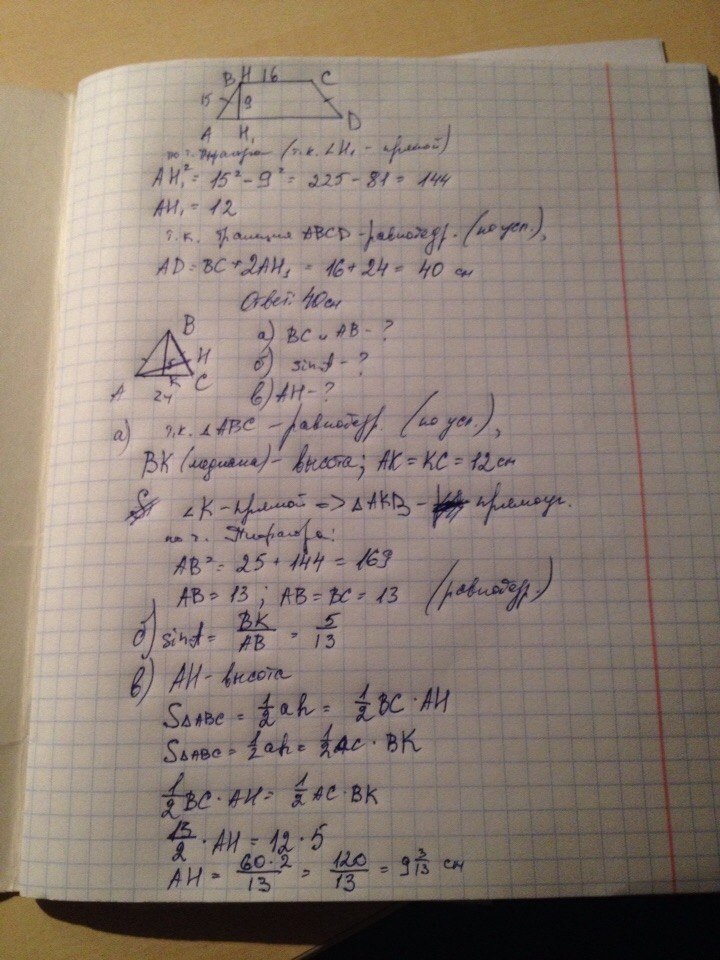 B H 16 C
15 9
A H₁ D
по т. Пифагора (т.к. ∠H₁ - прямой)
AH₁² = 15² - 9² = 225 - 81 = 144
AH₁ = 12
т.к. трапеция ABCD - равнобедр. (по усл.),
AD = BC + 2AH₁ = 16 + 24 = 40 см
Ответ: 40см
B
5 H
A K C
24
а) BC и AB - ?
б) sinA - ?
в) AH - ?
а) т.к. △ABC - равнобедр. (по усл.),
BK (медиана) - высота; AK = KC = 12 см
∠K - прямой => △AKB - прямоуг.
по т. Пифагора:
AB² = 25 + 144 = 169
AB = 13; AB = BC = 13 (равнобедр.)
б) sinA = BK/AB = 5/13
в) AH - высота
S△ABC = 1/2 ah = 1/2 BC · AH
S△ABC = 1/2 ah = 1/2 AC · BK
1/2 BC · AH = 1/2 AC · BK
13/2 · AH = 12 · 5
AH = 60·2/13 = 120/13 = 9 3/13 см